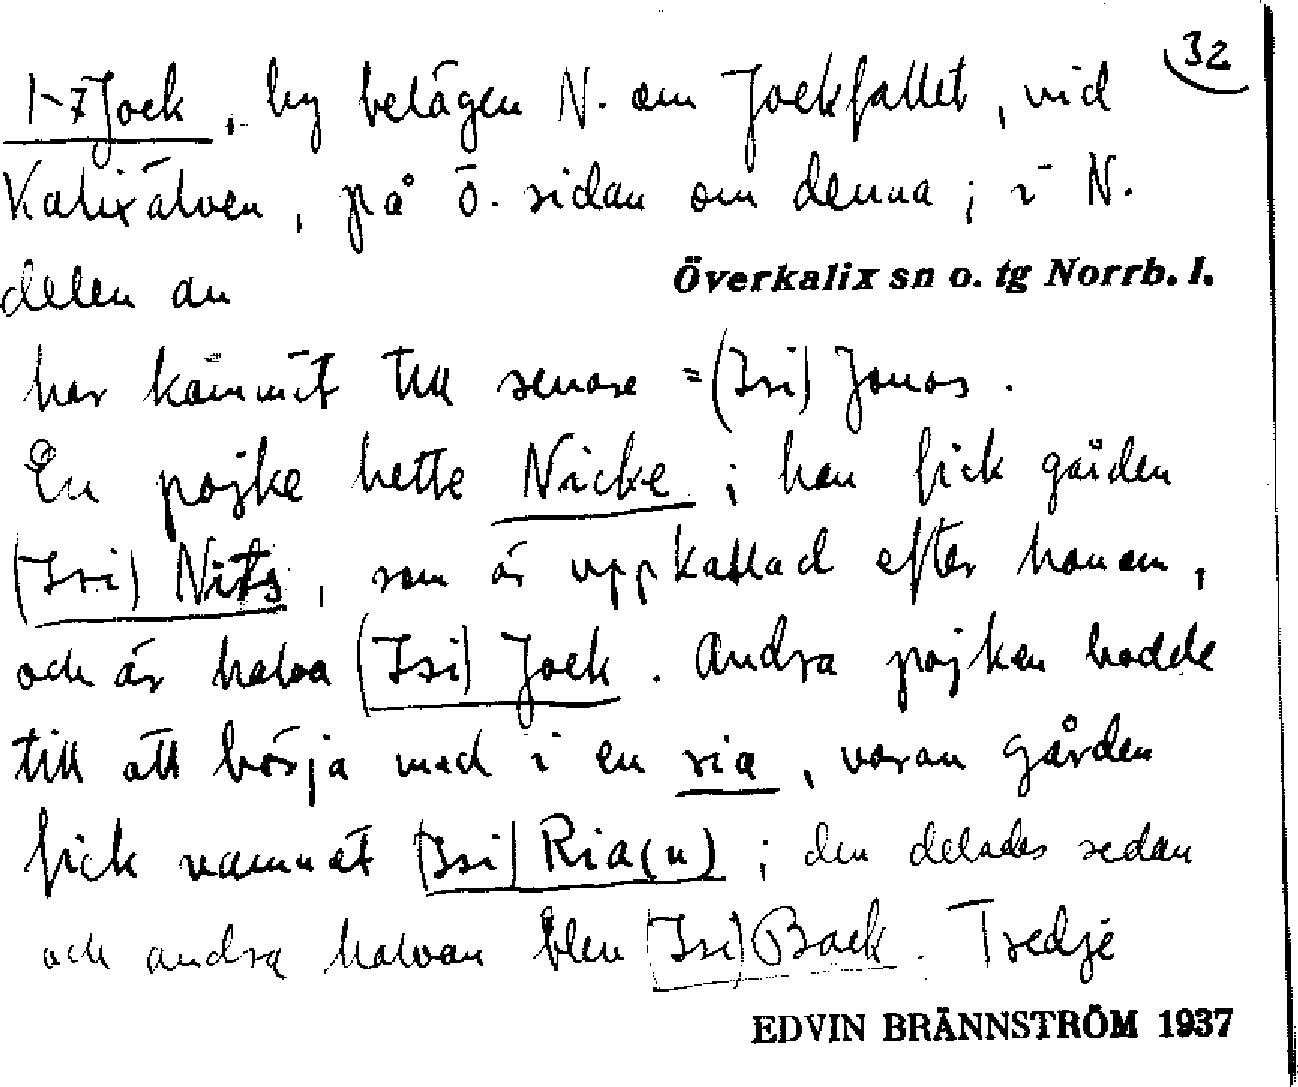 32
1-7 Jock, by belägen N. om Jockfallet, vid
Kalixälven, på ö. sidan om denna; i N.
delen av
Överkalix sn o. tg Norrb. l.
har kommit till senare =(Isi) Jonas.
En pojke hette Nicke; han fick gården
(Isi) Nits, som är uppkallad efter honom,
och är halva (Isi) Jock. Andra pojken hadde
till att börja med i en ria, varav gården
fick namnet (Isi) Ria(n); den delades sedan
och andra halvan blev (Isi) Back. Tredje
EDVIN BRÄNNSTRÖM 1937